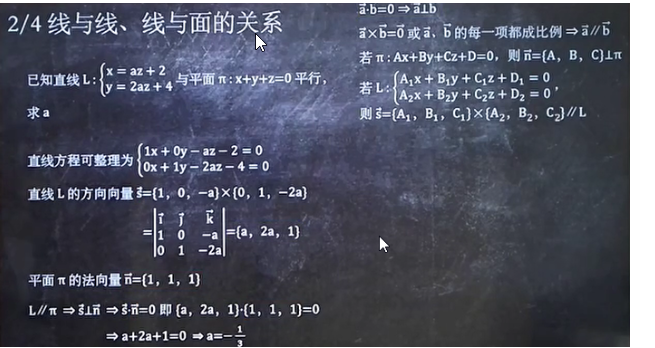 2/4 线与线、线与面的关系
已知直线 L:{x = az + 2
y = 2az + 4 与平面 π:x+y+z=0 平行,
求 a
直线方程可整理为{1x + 0y − az − 2 = 0
0x + 1y − 2az − 4 = 0
直线 L 的方向向量 s⃗={1, 0, −a}×{0, 1, −2a}
=|i⃗ j⃗ k⃗|
|1 0 −a|={a, 2a, 1}
|0 1 −2a|
平面 π 的法向量 n⃗={1, 1, 1}
L∥π ⇒ s⃗⊥n⃗ ⇒ s⃗·n⃗=0 即 {a, 2a, 1}·{1, 1, 1}=0
⇒ a+2a+1=0 ⇒ a=−1/3
a⃗·b=0 ⇒ a⃗⊥b
a⃗×b⃗=0 或 a⃗、b⃗ 的每一项都成比例 ⇒ a⃗∥b⃗
若 π:Ax+By+Cz+D=0, 则 n⃗={A, B, C}⊥π
若 L:{A₁x + B₁y + C₁z + D₁ = 0
A₂x + B₂y + C₂z + D₂ = 0,
则 s⃗={A₁, B₁, C₁}×{A₂, B₂, C₂}∥L